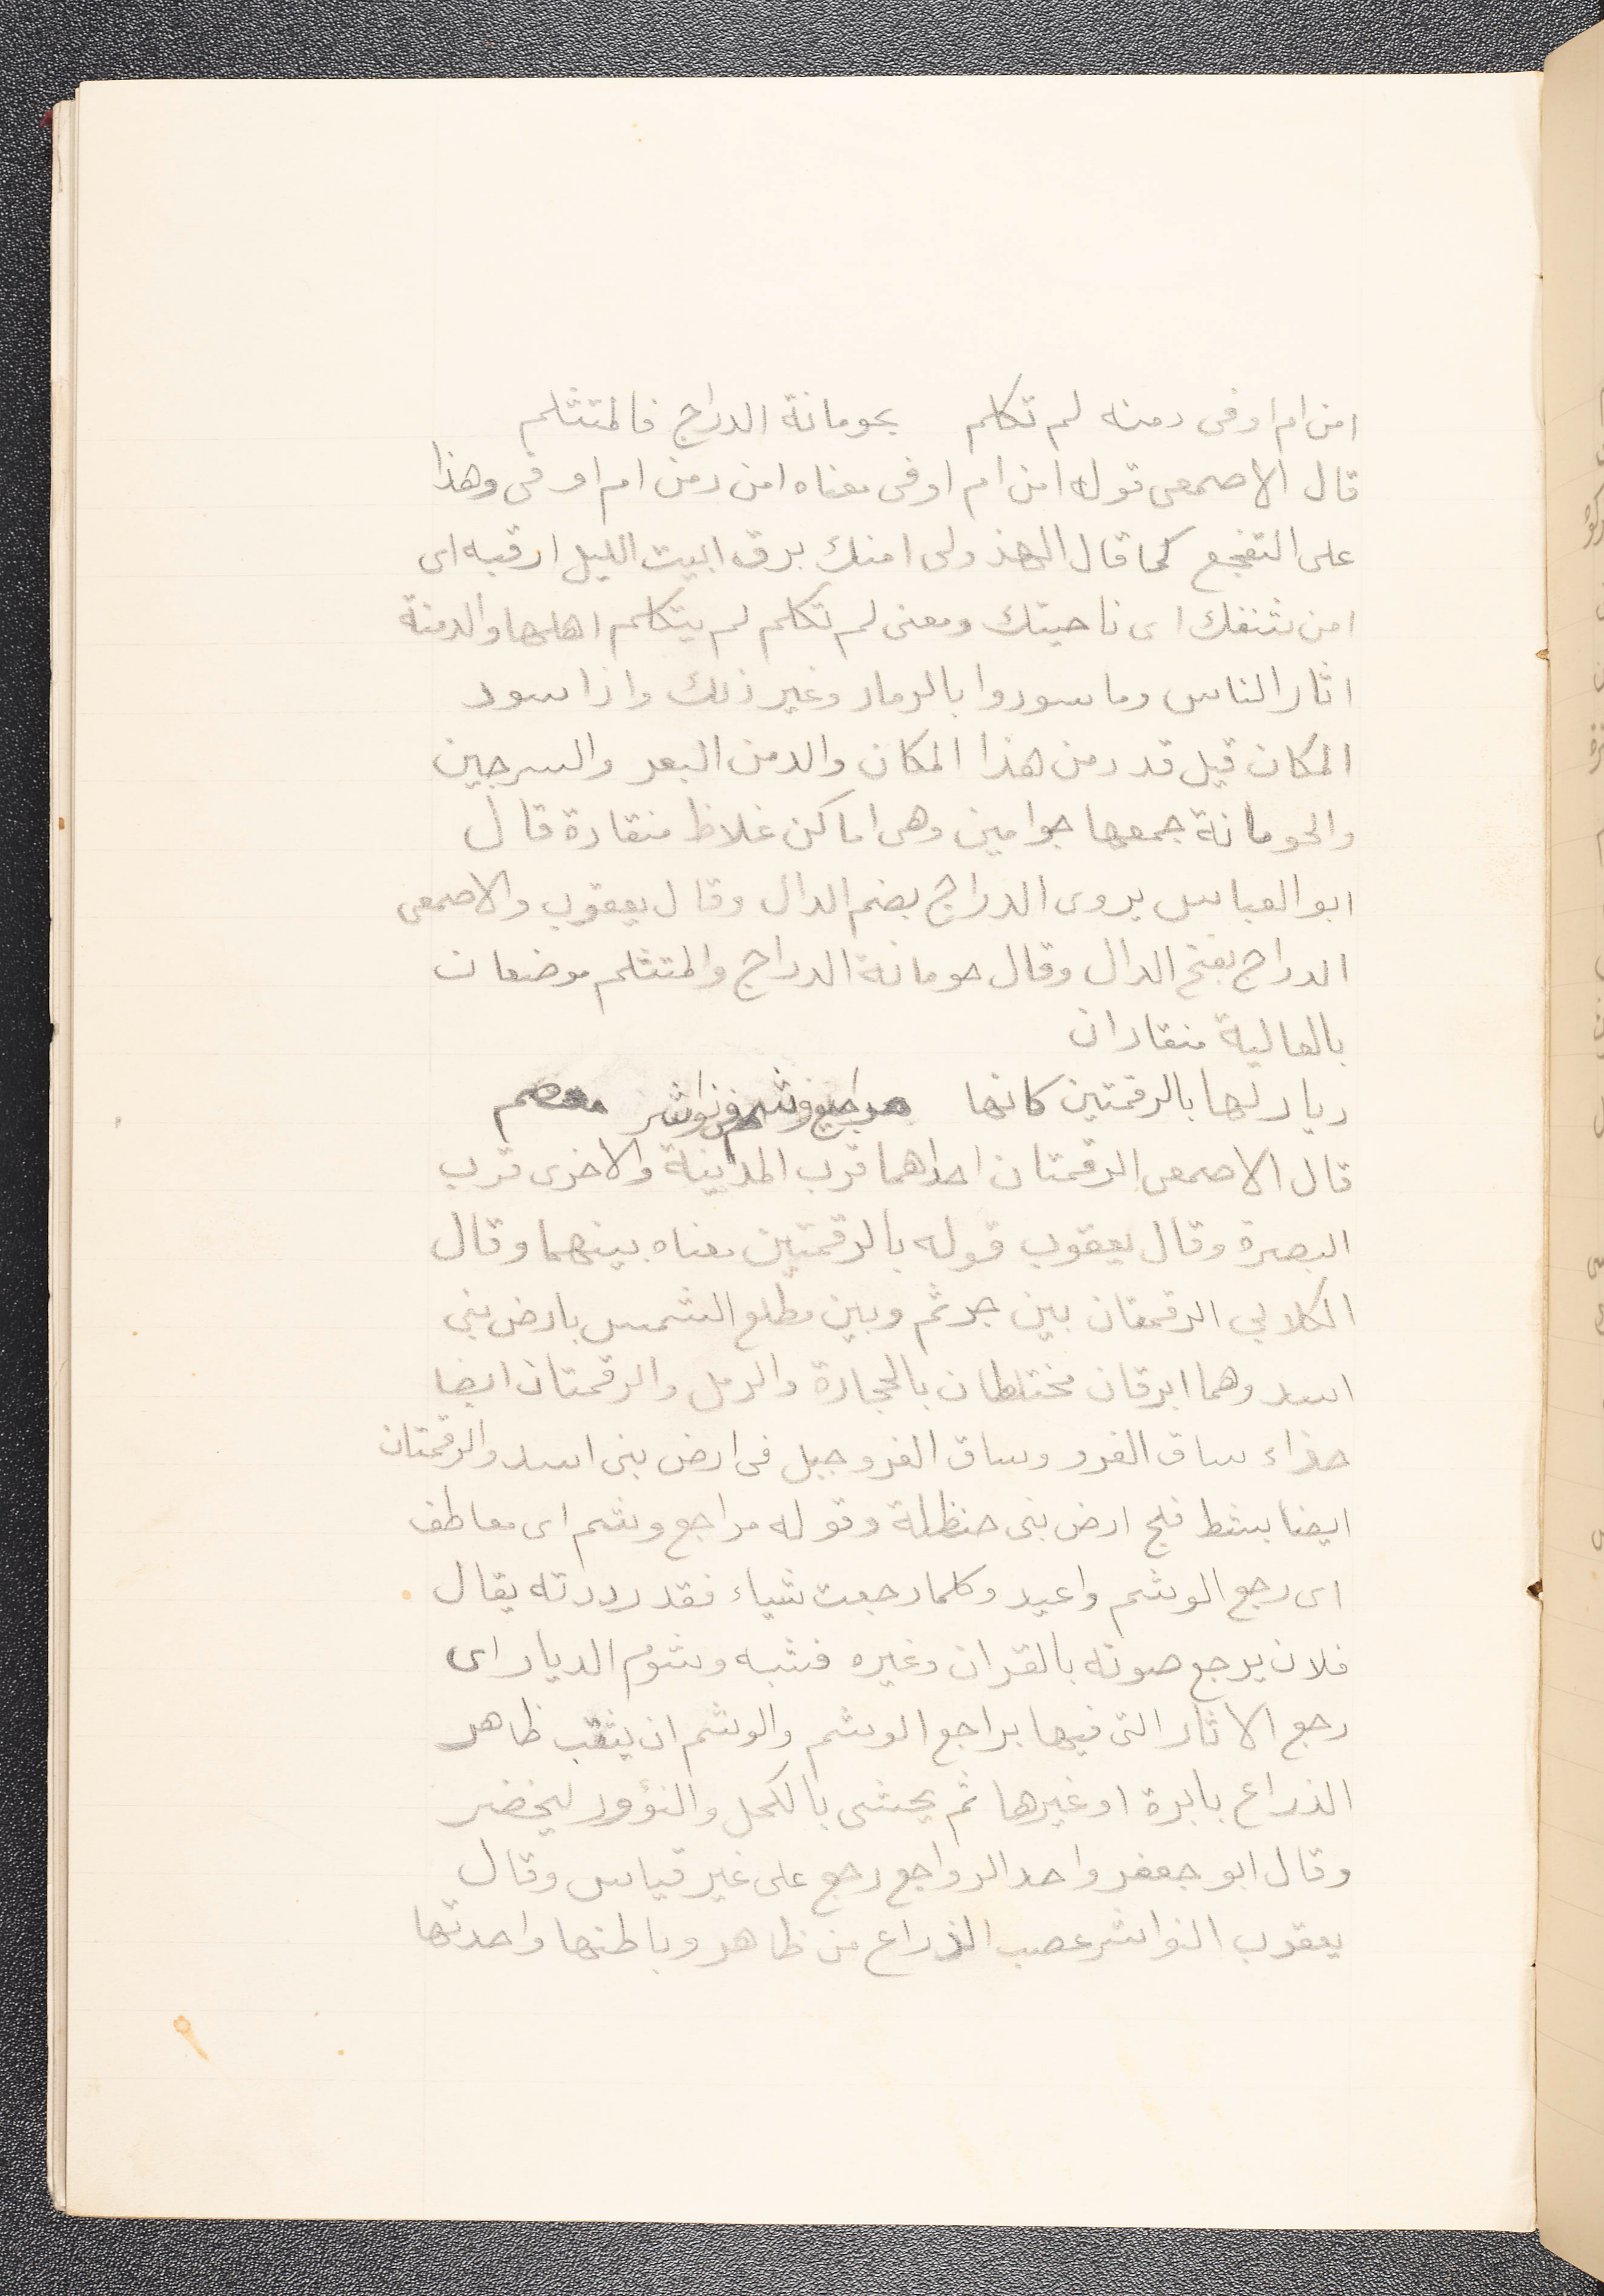 امن ام اوفى دمنه لم تكلم بحومانة الدراج فالمتثلم
قال الاصمعى قوله امن ام اوفى معناه امن دمن ام اوفى وهذا
على التفجع كما قال الهذولى امنك برق ابيت الليل ارقبه اى
امن شقك اى ناحيتك ومعنى لم تكلم لم يتكلم اهلها والدمنة
اثار الناس وما سودوا بالرماد وغير ذلك واذا سود
المكان قيل قد دمن هذا المكان والدمن البعر والسرجين
والحومانة جمعها حوامين وهى اماكن غلاظ منقادة قال
ابو العباس يروى الدراج بضم الدال وقال يعقوب والاصمعى
الدراج بفتح الدال وقال حومانة الدراج والمتثلم موضعان
بالعالية منقادان
ديار لها بالرقمتين كانها مراجيع وشم فى نواشر معصم
قال الاصمعى الرقمتان احداهما قرب المدينة والاخرى قرب
البصرة وقال يعقوب قوله بالرقمتين معناه بينهما وقال
الكلابي الرقمتان بين جرثم وبين مطلع الشمس بارض بني
اسد وهما ابرقان مختلطان بالحجارة والرمل والرقمتان ايضا
حذاء ساق الفرو وساق الفرو جبل فى ارض بنى اسد والرقمتان
ايضا بشط فلج ارض بنى حنظلة وقوله مراجع وشم اى معاطف
اى رجع الوشم واعيد وكلما رجعت شياء فقد رددته يقال
فلان يرجع صوته بالقران وغيره فشبه وشوم الديار اى
رجع الاثار التى فيها براجع الوشم والوشم ان يثقب ظاهر
الذراع بابرة او غيرها ثم يحشى بالكحل والنؤور ليخضر
وقال ابو جعفر واحد الرواجع رجع على غير قياس وقال
يعقوب النواشر عصب الذراع من ظاهر وباطنها واحدتها